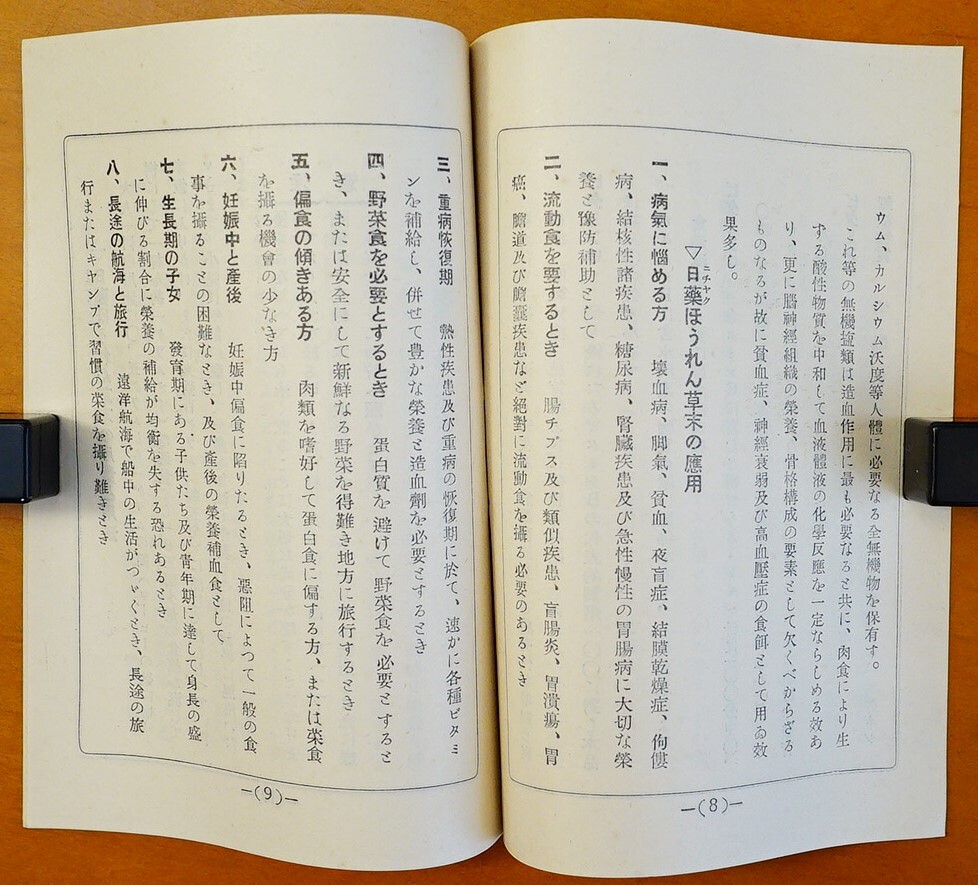 ウム、カルシウム沃度等人體に必要なる全無機物を保有す。
これ等の無機鹽類は造血作用に最も必要なると共に、肉食により生
ずる酸性物質を中和して血液體液の化學反應を一定ならしめる效あ
り、更に腦神經組織の榮養、骨格構成の要素として欠くべからざる
ものなるが故に貧血症、神經衰弱及び高血壓症の食餌として用ゐ效
果多し。
▽日藥ほうれん草末の應用
ニチヤク
一、病氣に惱める方　壞血病、脚氣、貧血、夜盲症、結膜乾燥症、佝僂
病、結核性諸疾患、糖尿病、腎臟疾患及び急性慢性の胃腸病に大切な榮
養と豫防補助として
二、流動食を要するとき　腸チブス及び類似疾患、盲腸炎、胃潰瘍、胃
癌、膽道及び膽囊疾患など絕對に流動食を攝る必要のあるとき
―(8)―
三、重病恢復期　熱性疾患及び重病の恢復期に於て、速かに各種ビタミ
ンを補給し、併せて豊かな榮養と造血劑を必要とするとき
四、野菜食を必要とするとき　蛋白質を避けて野菜食を必要とすると
き、または安全にして新鮮なる野菜を得難き地方に旅行するとき
五、偏食の傾きある方　肉類を嗜好して蛋白食に偏する方、または菜食
を攝る機會の少なき方
六、妊娠中と產後　妊娠中偏食に陷りたるとき、惡阻によつて一般の食
事を攝ることの困難なとき、及び產後の榮養補血食として
七、生長期の子女　發育期にある子供たち及び靑年期に達して身長の盛
に伸びる割合に榮養の補給が均衡を失する恐れあるとき
八、長途の航海と旅行　遠洋航海で船中の生活がつゞくとき、長途の旅
行またはキャンプで習慣の菜食を攝り難きとき
―(9)―